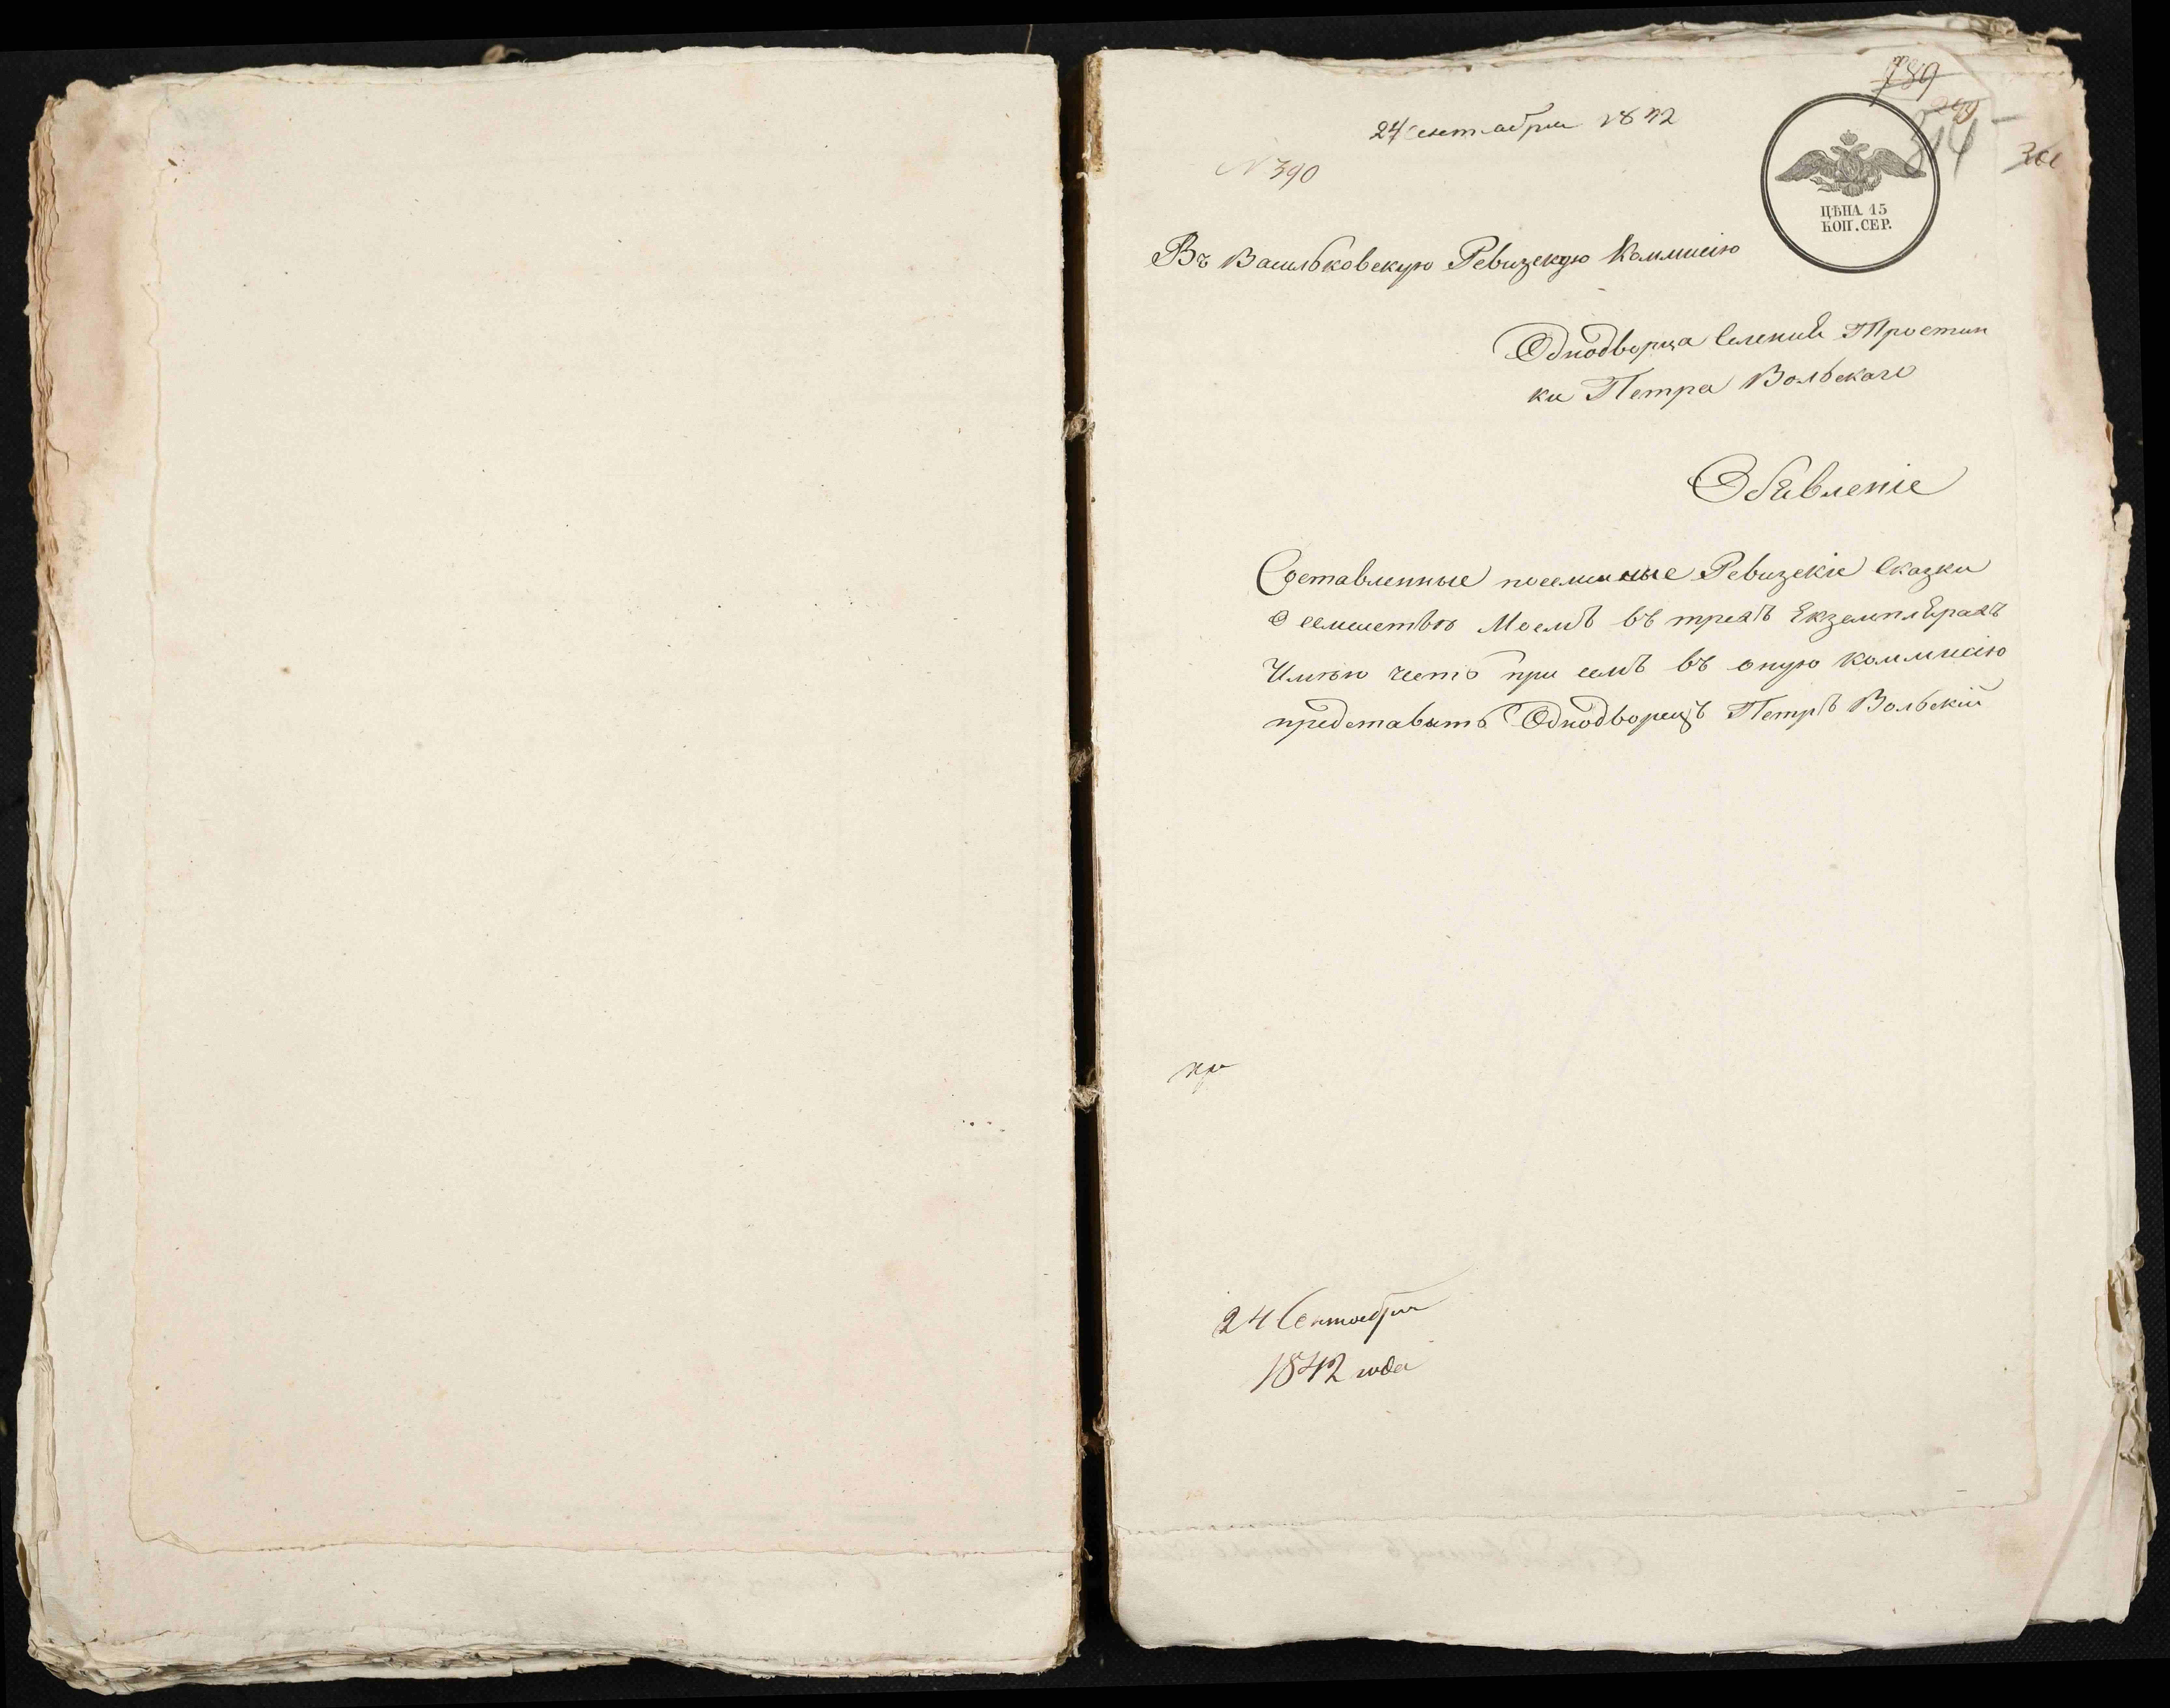 789
299
314
361
24 Сентября 1842
N 390
ЦѢНА 15
КОП. СЕР.
Въ Васильковскую Ревизскую Коммисію
Однодворца Селенія Тростин
ки Петра Вольскаго
Объявленіе
Составленные посемейные Ревизскіе Сказки
О семействѣ Моемъ въ трехъ Екземплярахъ
Имѣю честь при семъ въ оную Коммисію
представить Однодворецъ Петръ Вольскій
24 Сентября
1842 года